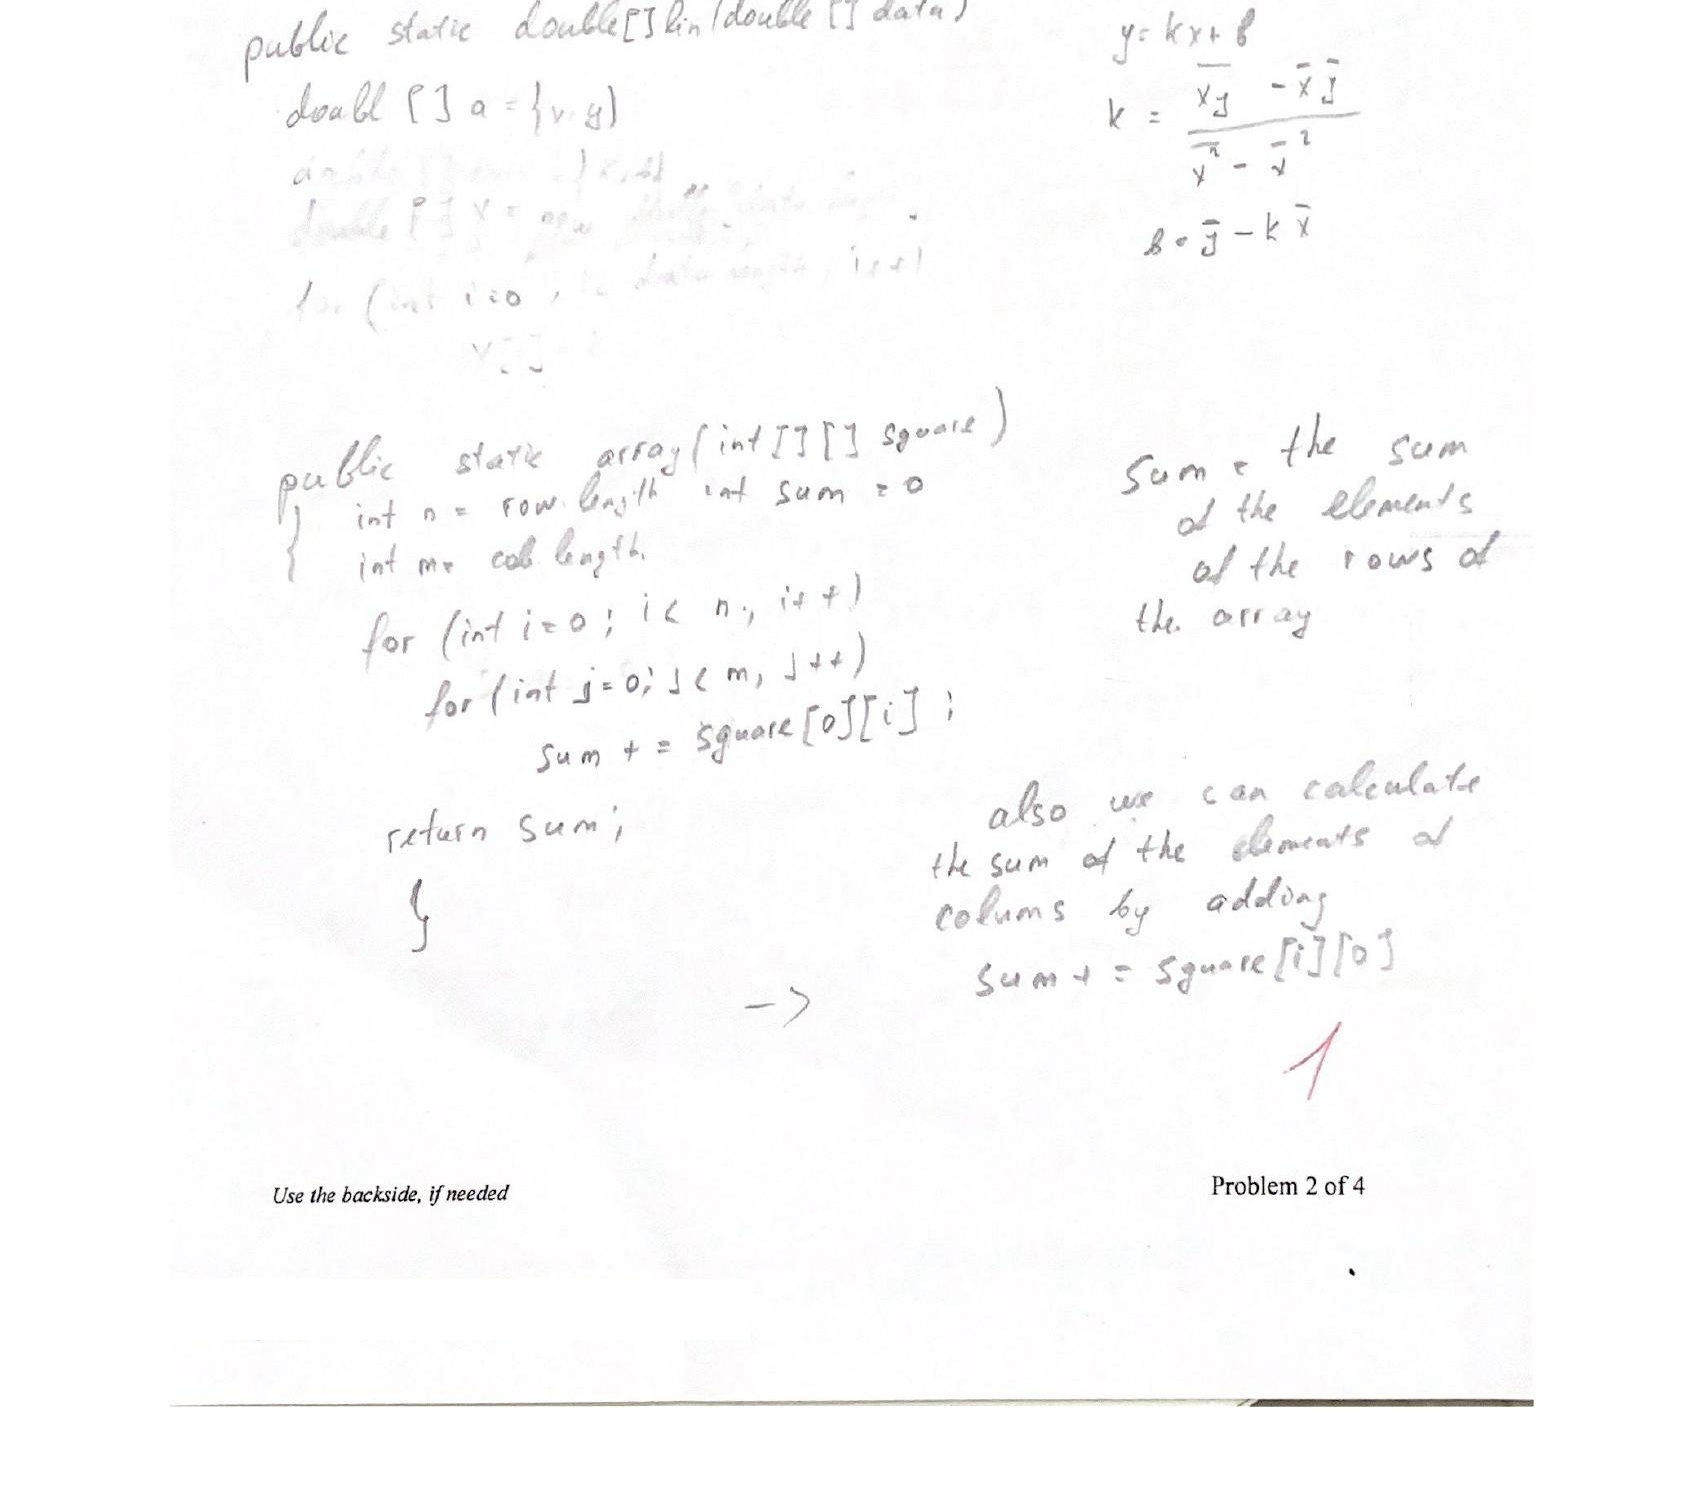 public static double[] lin(double [] data)
doubl [] a = {x, y}
double [] x = new
for (int i=0 ; i< data length ; i++)
y = kx + b
k = x̅y̅ - x̅ y̅ / x̅²̅ - x̅²
b = y̅ - k x̅
public static array(int [][] square)
{ int n = row.length int sum = 0
int m = col.length.
for (int i=0; i< n; i++)
for (int j=0; j< m, j++)
sum += square[0][i];
return sum;
}
sum = the sum
of the elements
of the rows of
the array
also we can calculate
the sum of the elements of
colums by adding
sum += square[i][0]
->
1
Use the backside, if needed
Problem 2 of 4